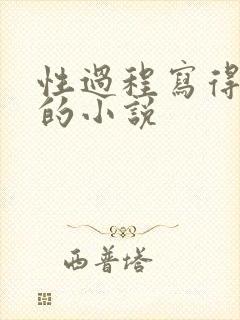 性過程寫得
的小說
西普塔